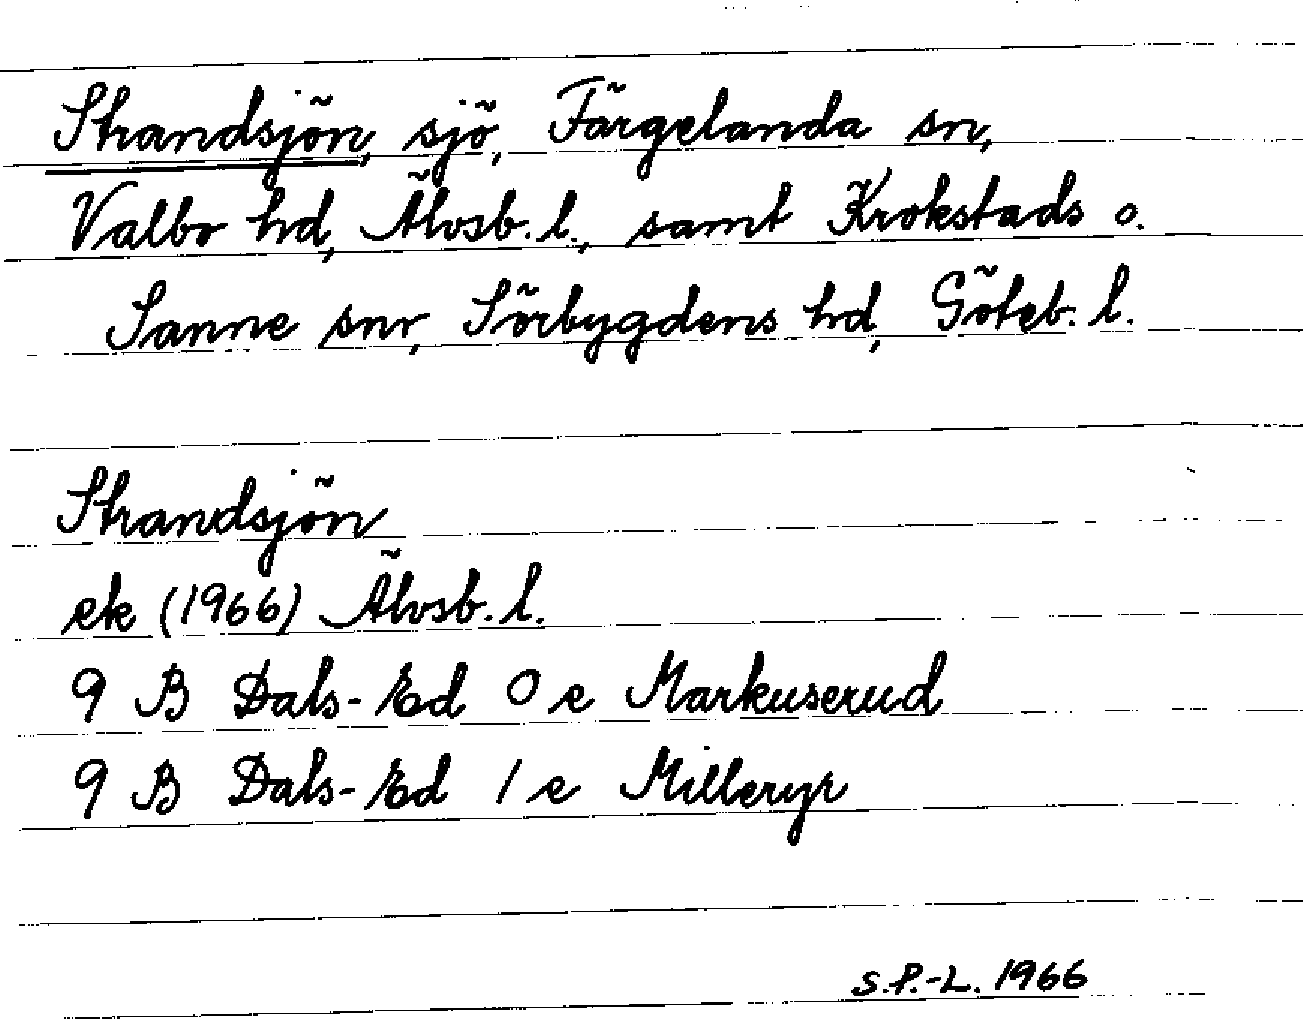 Strandsjön, sjö, Färgelanda sn,
Valbo hd, Älvsb. l., samt Krokstads o.
Sanne snr, Sörbygdens hd, Göteb. l.
Strandsjön
ek (1966) Älvsb. l.
9 B Dals-Ed 0 e Markuserud
9 B Dals-Ed 1 e Milleryr
S.P.-L. 1966